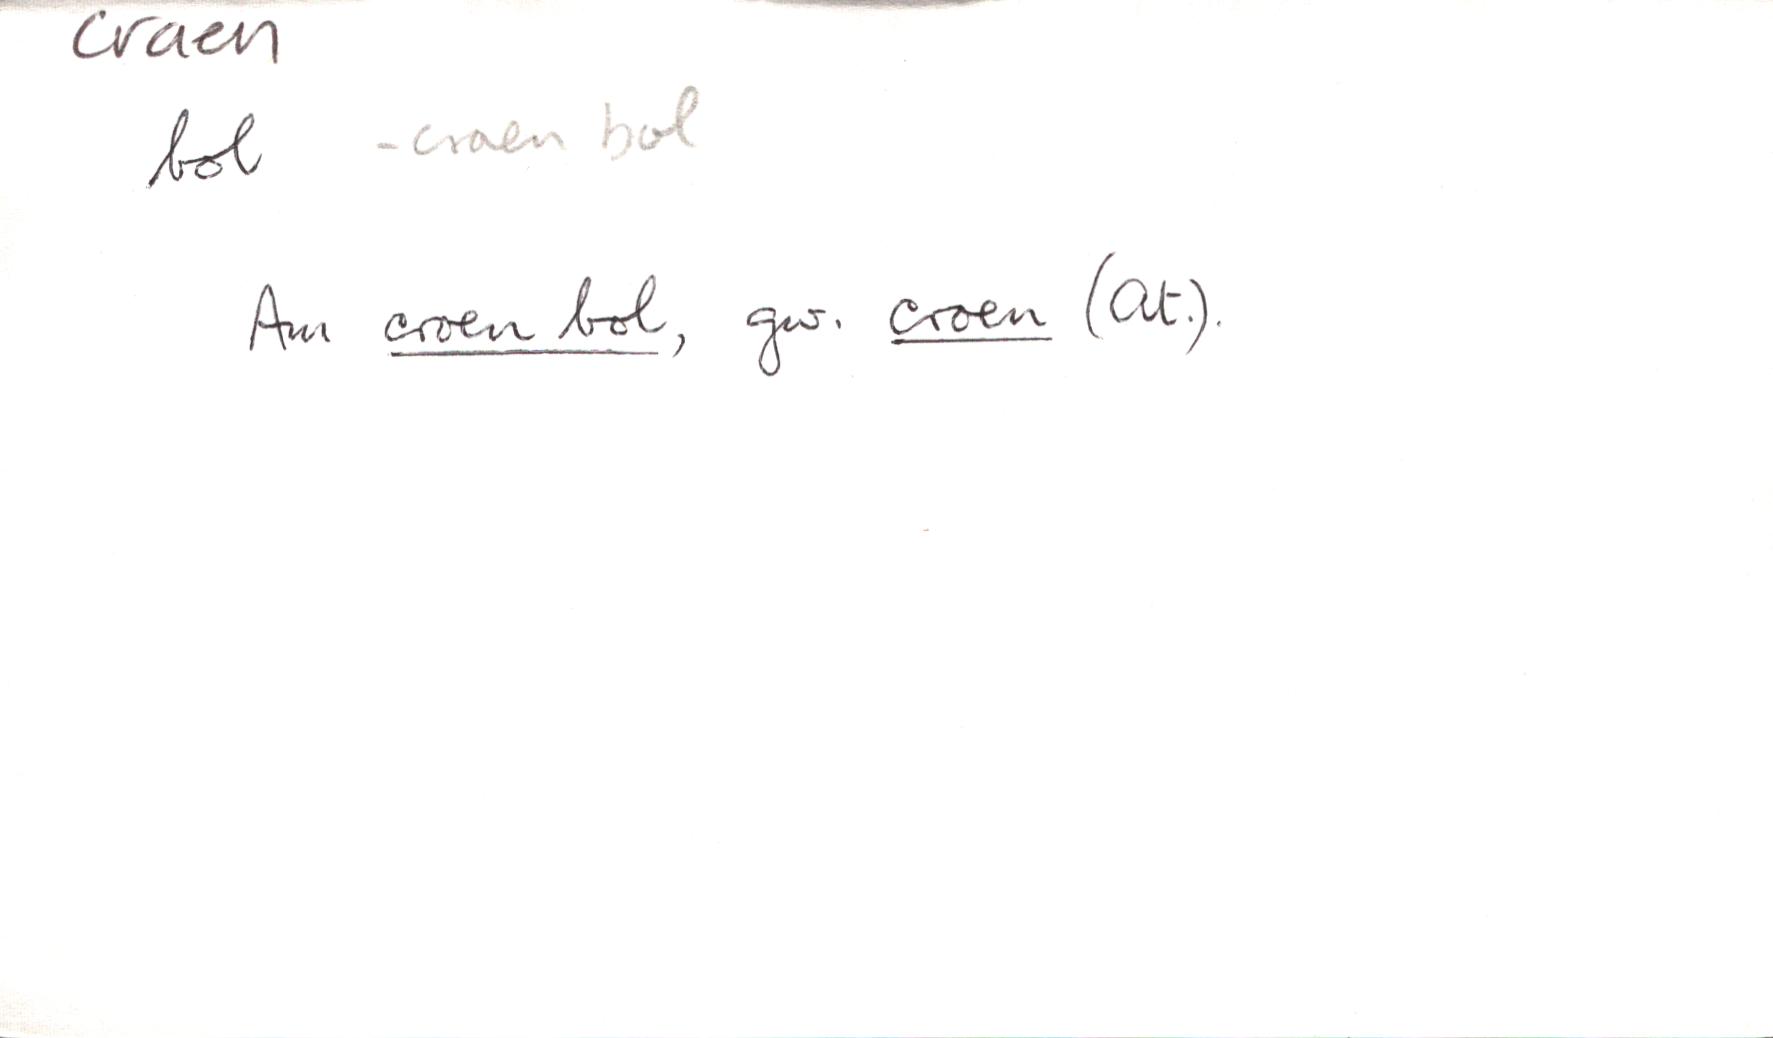 craen
bol - craen bol
Am croen bol, gw. croen (At.).